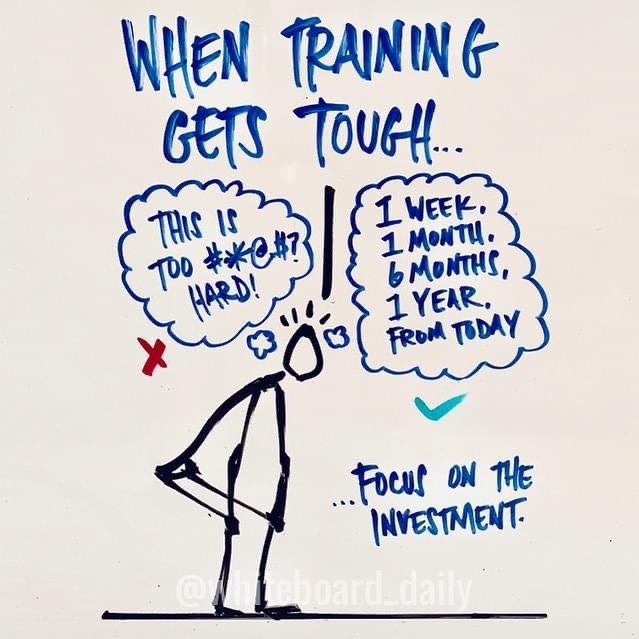 WHEN TRAINING
GETS TOUGH...
THIS IS
TOO #*@#?
HARD!
1 WEEK.
1 MONTH.
6 MONTHS,
1 YEAR.
FROM TODAY
...FOCUS ON THE
INVESTMENT.
@whiteboard_daily